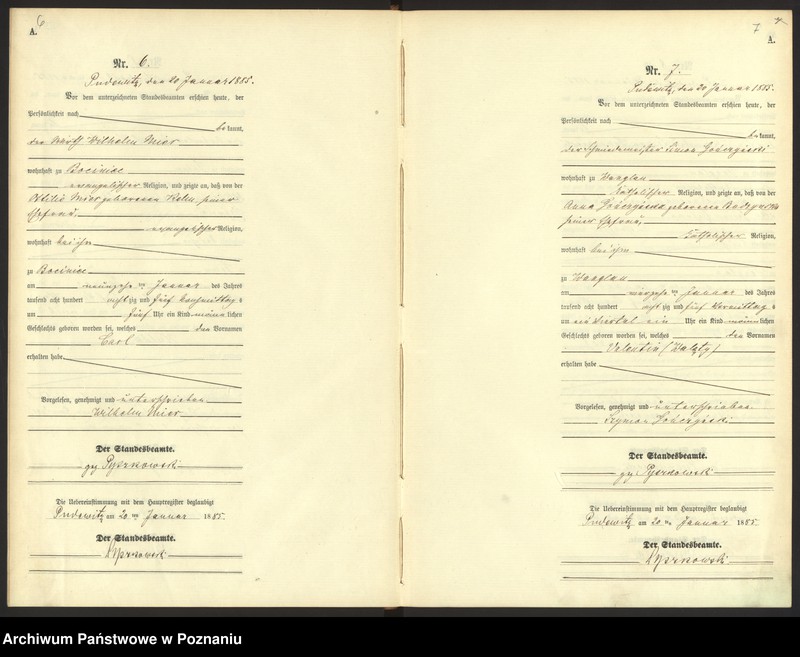 6
A.
Nr. 6.
Pudewitz, den 20 Januar 1885.
Vor dem unterzeichneten Standesbeamten erschien heute, der
Persönlichkeit nach
bekannt,
der Wirth Wilhelm Mier
wohnhaft zu Bociniec
evangelischer Religion, und zeigte an, daß von der
Ottilie Mier geborenen seiner
Ehefrau
evangelischer Religion,
wohnhaft bei ihm
zu Bociniec
am neunzehnten Januar des Jahres
tausend acht hundert achtzig und fünf Nachmittag s
um fünf Uhr ein Kind männlichen
Geschlechts geboren worden sei, welches den Vornamen
Carl
erhalten habe.
Vorgelesen, genehmigt und unterschrieben
Wilhelm Mier
Der Standesbeamte.
gez Pyszkowski
Die Uebereinstimmung mit dem Hauptregister beglaubigt
Pudewitz am 20 ten Januar 1885.
Der Standesbeamte.
Pyszkowski
7
A.
Nr. 7.
Pudewitz, den 20 Januar 1885.
Vor dem unterzeichneten Standesbeamten erschien heute, der
Persönlichkeit nach
bekannt,
der Schmiedemeister Simon
wohnhaft zu Wenglau
katholischer Religion, und zeigte an, daß von der
Anna geborenen
seiner Ehefrau,
katholischer Religion,
wohnhaft bei ihm
zu Wenglau
am ten Januar des Jahres
tausend acht hundert achtzig und fünf Vormittag s
um ein Viertel ein Uhr ein Kind männlichen
Geschlechts geboren worden sei, welches den Vornamen
Valentin
erhalten habe.
Vorgelesen, genehmigt und unterschrieben.
Szymon
Der Standesbeamte.
gez Pyszkowski
Die Uebereinstimmung mit dem Hauptregister beglaubigt
Pudewitz am 20 ten Januar 1885
Der Standesbeamte.
Pyszkowski
Archiwum Państwowe w Poznaniu